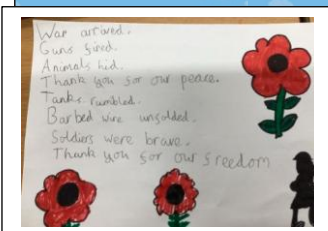 War arrived.
Guns fired.
Animals hid.
Thank you for our peace.
Tanks rumbled.
Barbed wire unfolded.
Soldiers were brave.
Thank you for our freedom